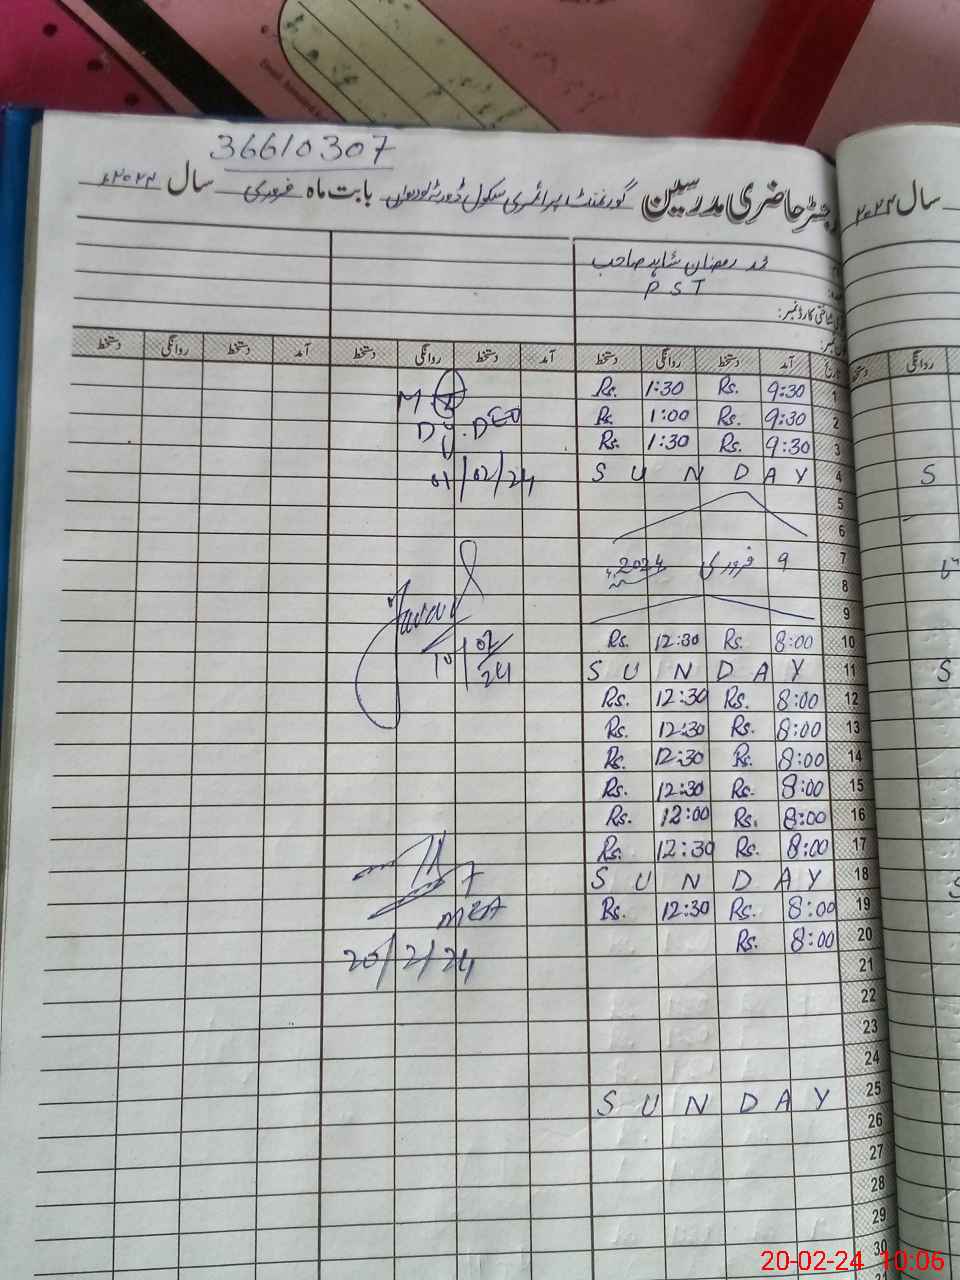 36610307
رجسٹر حاضری مدرسین گورنمنٹ پرائمری سکول بابت ماہ فروری سال ۲۰۲۴ء
سال ۲۰۲۴
رمضان شاہد صاحب
P S T
آمد دستخط روانگی دستخط آمد دستخط روانگی دستخط آمد دستخط روانگی دستخط
روانگی دستخط
1 9:30 Rs. 1:30 Rs.
2 9:30 Rs. 1:00 Rs.
3 9:30 Rs. 1:30 Rs.
Dy. DEO
4 S U N D A Y
S
01/02/24
5
6
7 9 فروری 2024
8
9
10 8:00 Rs. 12:30 Rs.
10/02/24
11 S U N D A Y
S
12 8:00 Rs. 12:30 Rs.
13 8:00 Rs. 12:30 Rs.
14 8:00 Rs. 12:30 Rs.
15 8:00 Rs. 12:30 Rs.
16 8:00 Rs. 12:00 Rs.
17 8:00 Rs. 12:30 Rs.
18 S U N D A Y
S
19 8:00 Rs. 12:30 Rs.
MEA
20 8:00 Rs.
20/2/24
21
22
23
24
25 S U N D A Y
26
27
28
29
30
20-02-24 10:06